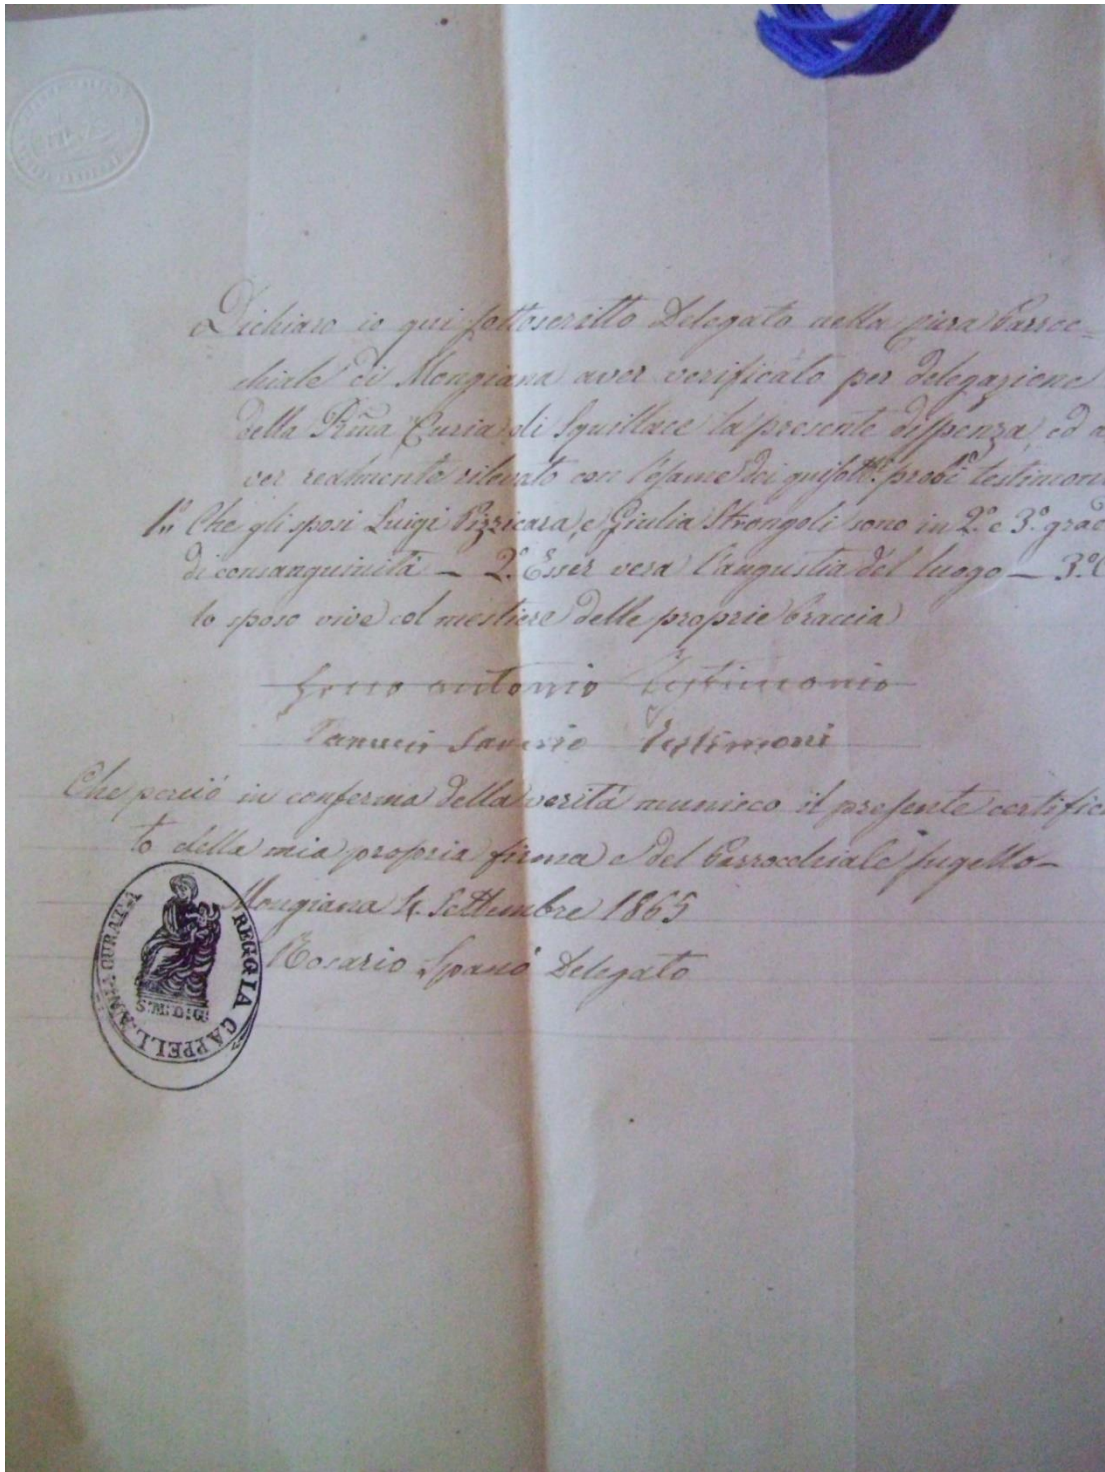 Dichiaro io qui sottoscritto Delegato nella cura Parroc=
chiale di Mongiana aver verificato per delegazione
della Rma Curia di Squillace la presente dispenza, ed a
ver realmente rilevato con l'esame dei quisotti probi testimoni
1.º Che gli sposi Luigi Pizzicara, e Giulia Strongoli sono in 2º e 3º grad
di consanguinità — 2º Esser vera l'angustia del luogo — 3º C
lo sposo vive col mestiere delle proprie braccia
antonio testimonio
Saverio testimoni
Che perciò in conferma della verità munisco il presente certifica
to della mia propria firma e del Parrocchiale sugello—
Mongiana 4. Settembre 1865
Rosario Spanó Delegato
REGGIA CAPPELLANIA CURATA
S.M.D.G.